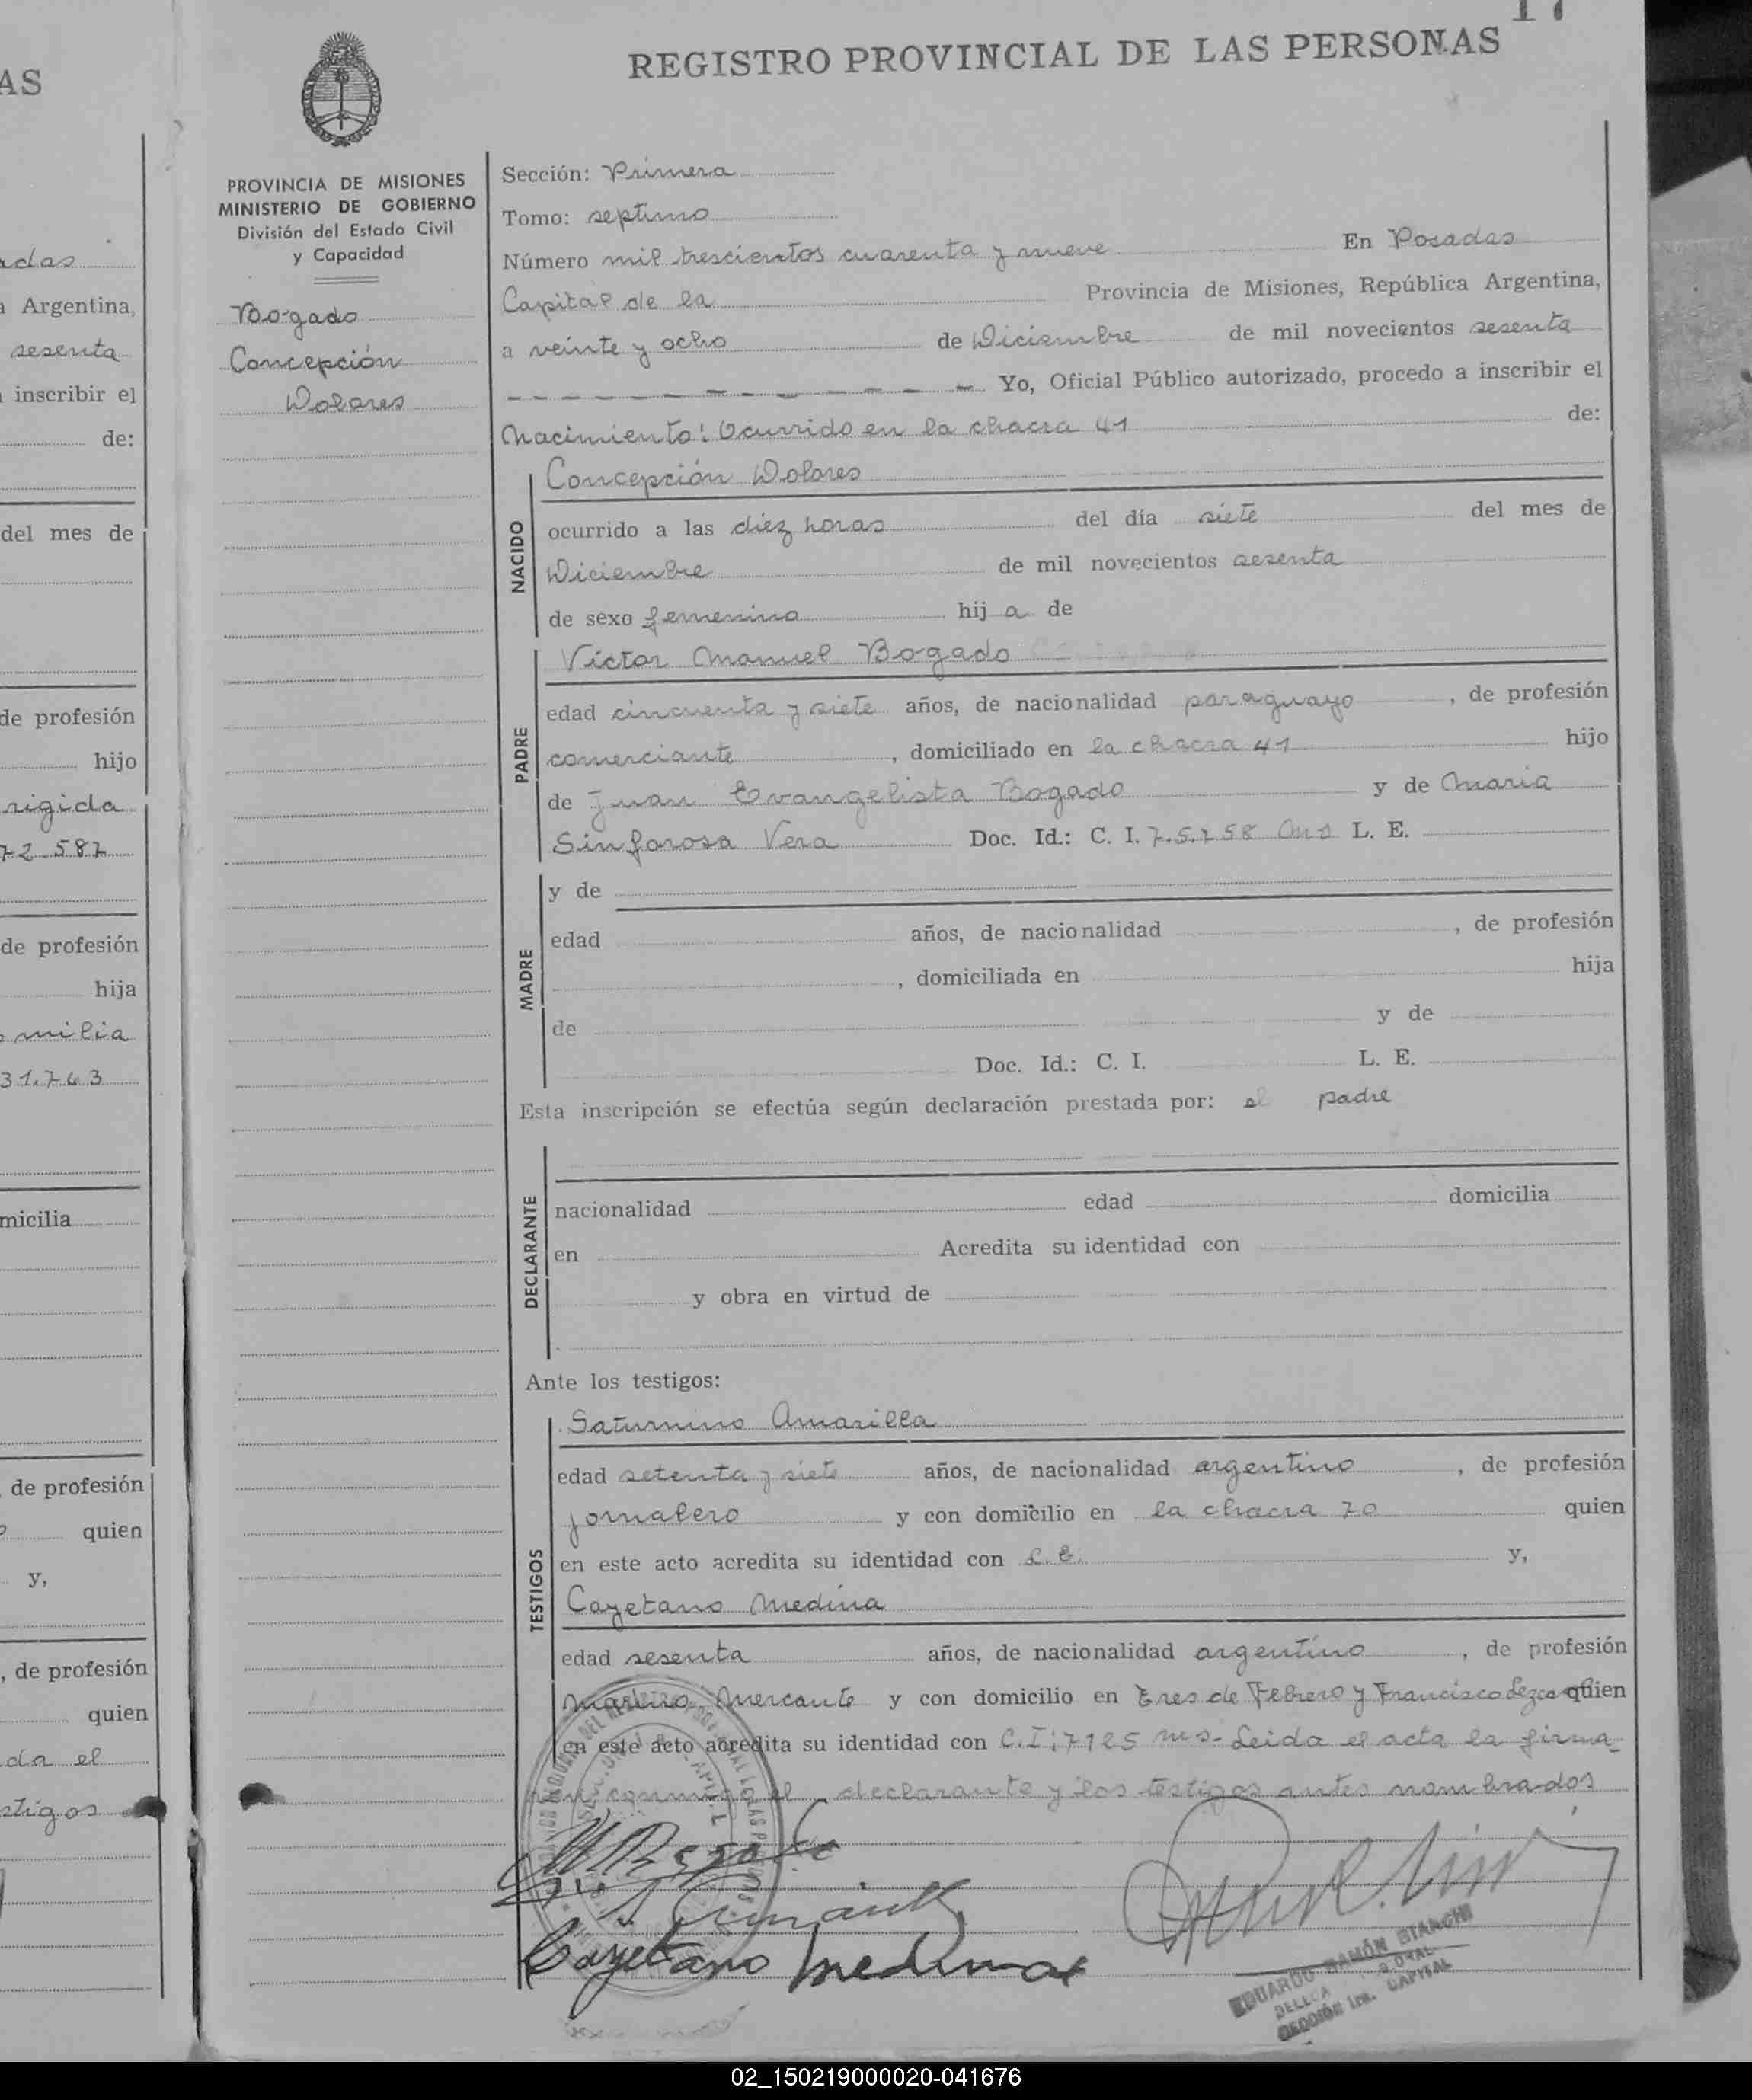 17
REGISTRO PROVINCIAL DE LAS PERSONAS
PROVINCIA DE MISIONES
MINISTERIO DE GOBIERNO
División del Estado Civil
y Capacidad
Bogado
Concepción
Dolores
Sección: Primera
Tomo: septimo
Número mil trescientos cuarenta y nueve En Posadas
Capital de la Provincia de Misiones, República Argentina,
a veinte y ocho de Diciembre de mil novecientos sesenta
Yo, Oficial Público autorizado, procedo a inscribir el
Nacimiento: Ocurrido en la chacra 41 de:
NACIDO
Concepción Dolores
ocurrido a las diez horas del día siete del mes de
Diciembre de mil novecientos sesenta
de sexo femenino hij a de
PADRE
Víctor Manuel Bogado
edad cincuenta y siete años, de nacionalidad paraguayo, de profesión
comerciante, domiciliado en la chacra 41 hijo
de Juan Evangelista Bogado y de Maria
Sinforosa Vera Doc. Id.: C. I. L. E.
MADRE
y de
edad años, de nacionalidad , de profesión
, domiciliada en hija
de y de
Doc. Id.: C. I. L. E.
Esta inscripción se efectúa según declaración prestada por: el padre
DECLARANTE
nacionalidad edad domicilia
en Acredita su identidad con
y obra en virtud de
Ante los testigos:
TESTIGOS
Saturnino Amarilla
edad setenta y siete años, de nacionalidad argentino, de profesión
jornalero y con domicilio en la chacra 70 quien
en este acto acredita su identidad con L.E. y,
Cayetano Medina
edad sesenta años, de nacionalidad argentino, de profesión
Marino Mercante y con domicilio en Tres de Febrero y Francisco quien
en este acto acredita su identidad con C.I: 7125 Mns- Leida el acta la firma-
n conmigo el declarante y los testigos antes nombrados
Cayetano Medina
EDUARDO RAMÓN BIANCHI
SECCIÓN 1ra. CAPITAL
AS
Argentina,
sesenta
inscribir el
de:
del mes de
de profesión
hijo
72.587
de profesión
hija
milia
31.763
micilia
de profesión
quien
y,
, de profesión
quien
da el
stigos
02_150219000020-041676